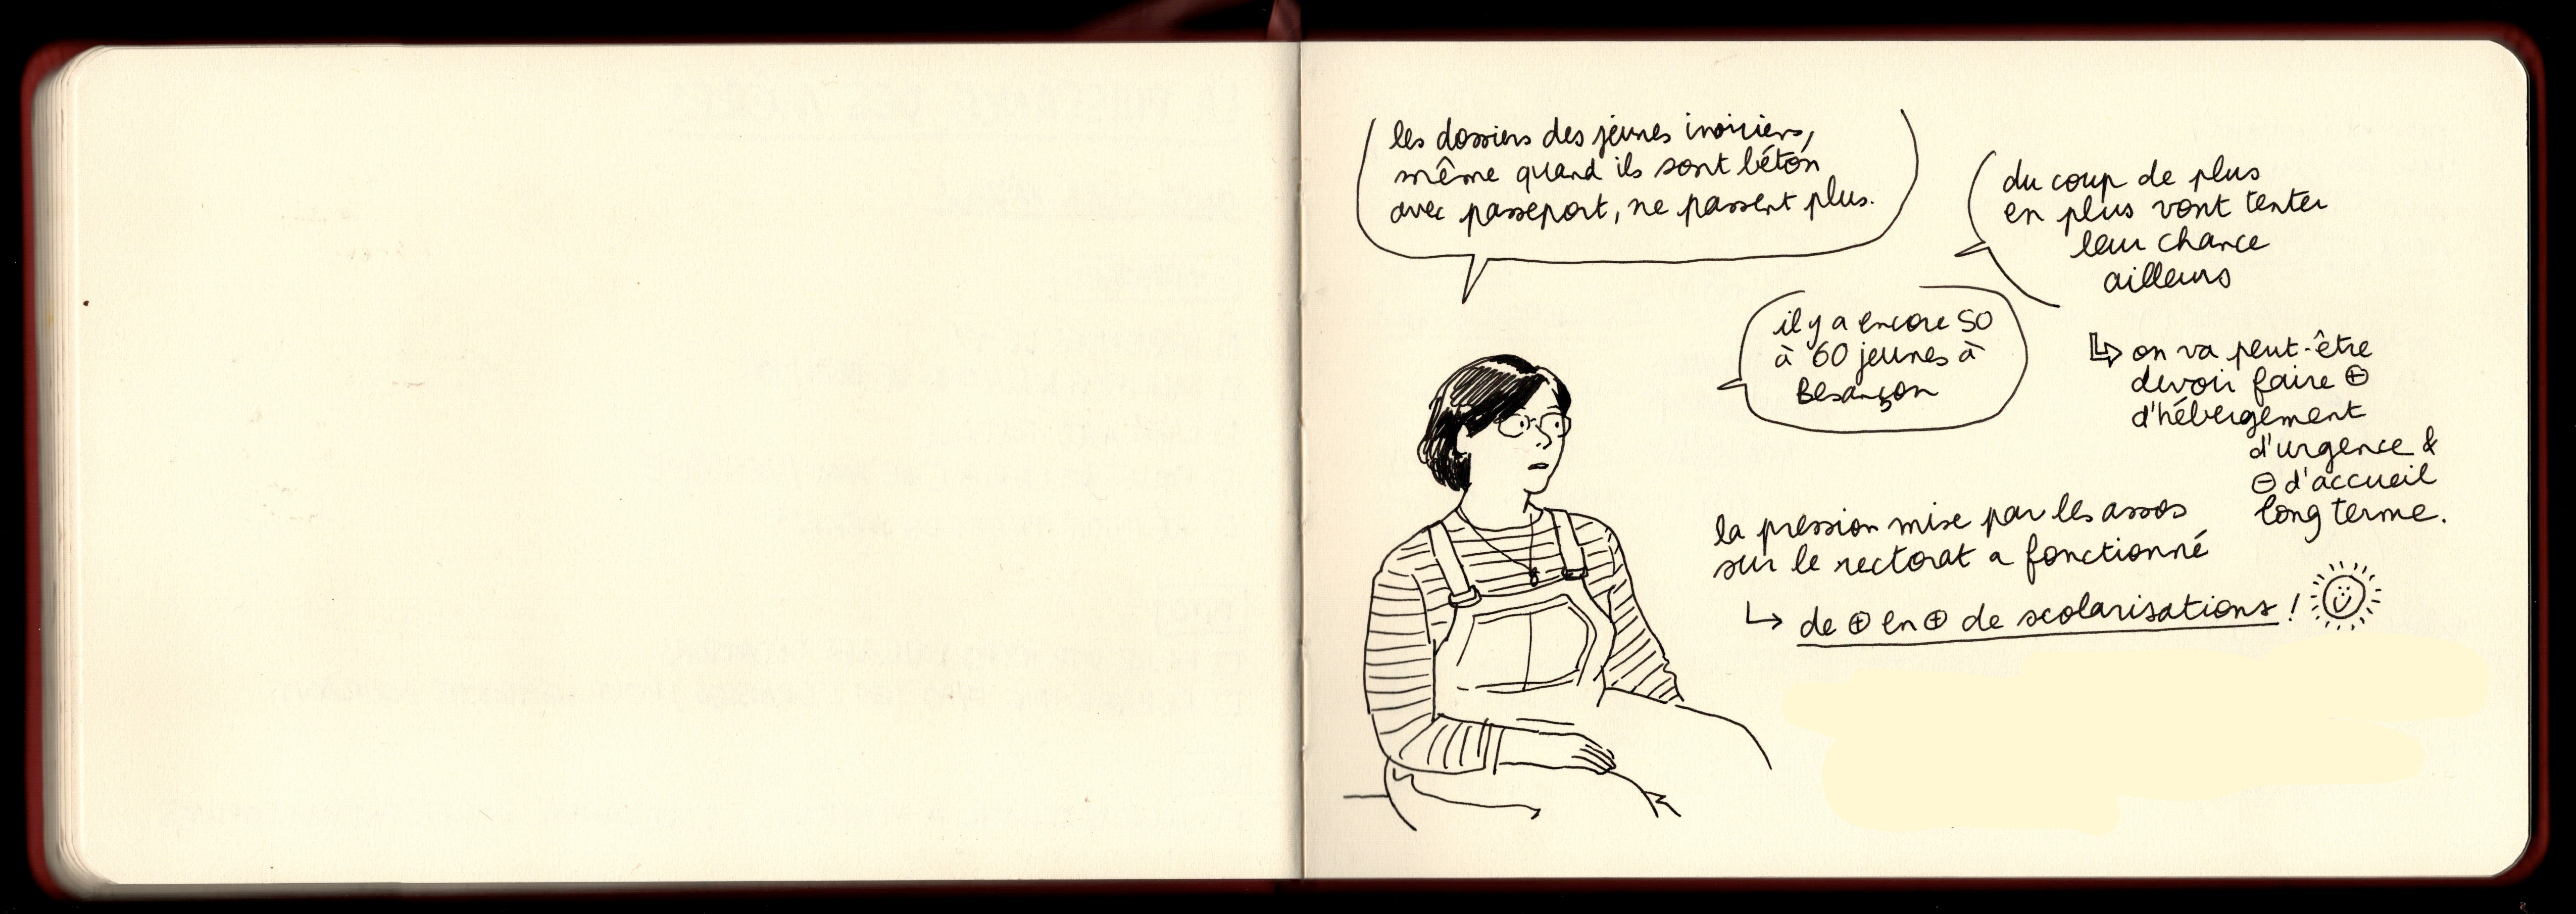 les dossiers des jeunes ivoiriens,
même quand ils sont béton
avec passeport, ne passent plus.
du coup de plus
en plus vont tenter
leur chance
ailleurs
il y a encore 50
à 60 jeunes à
Besançon
↳ on va peut-être
devoir faire ⊕
d'hébergement
d'urgence &
⊖ d'accueil
long terme.
la pression mise par les assos
sur le rectorat a fonctionné
↳ de ⊕ en ⊕ de scolarisations !